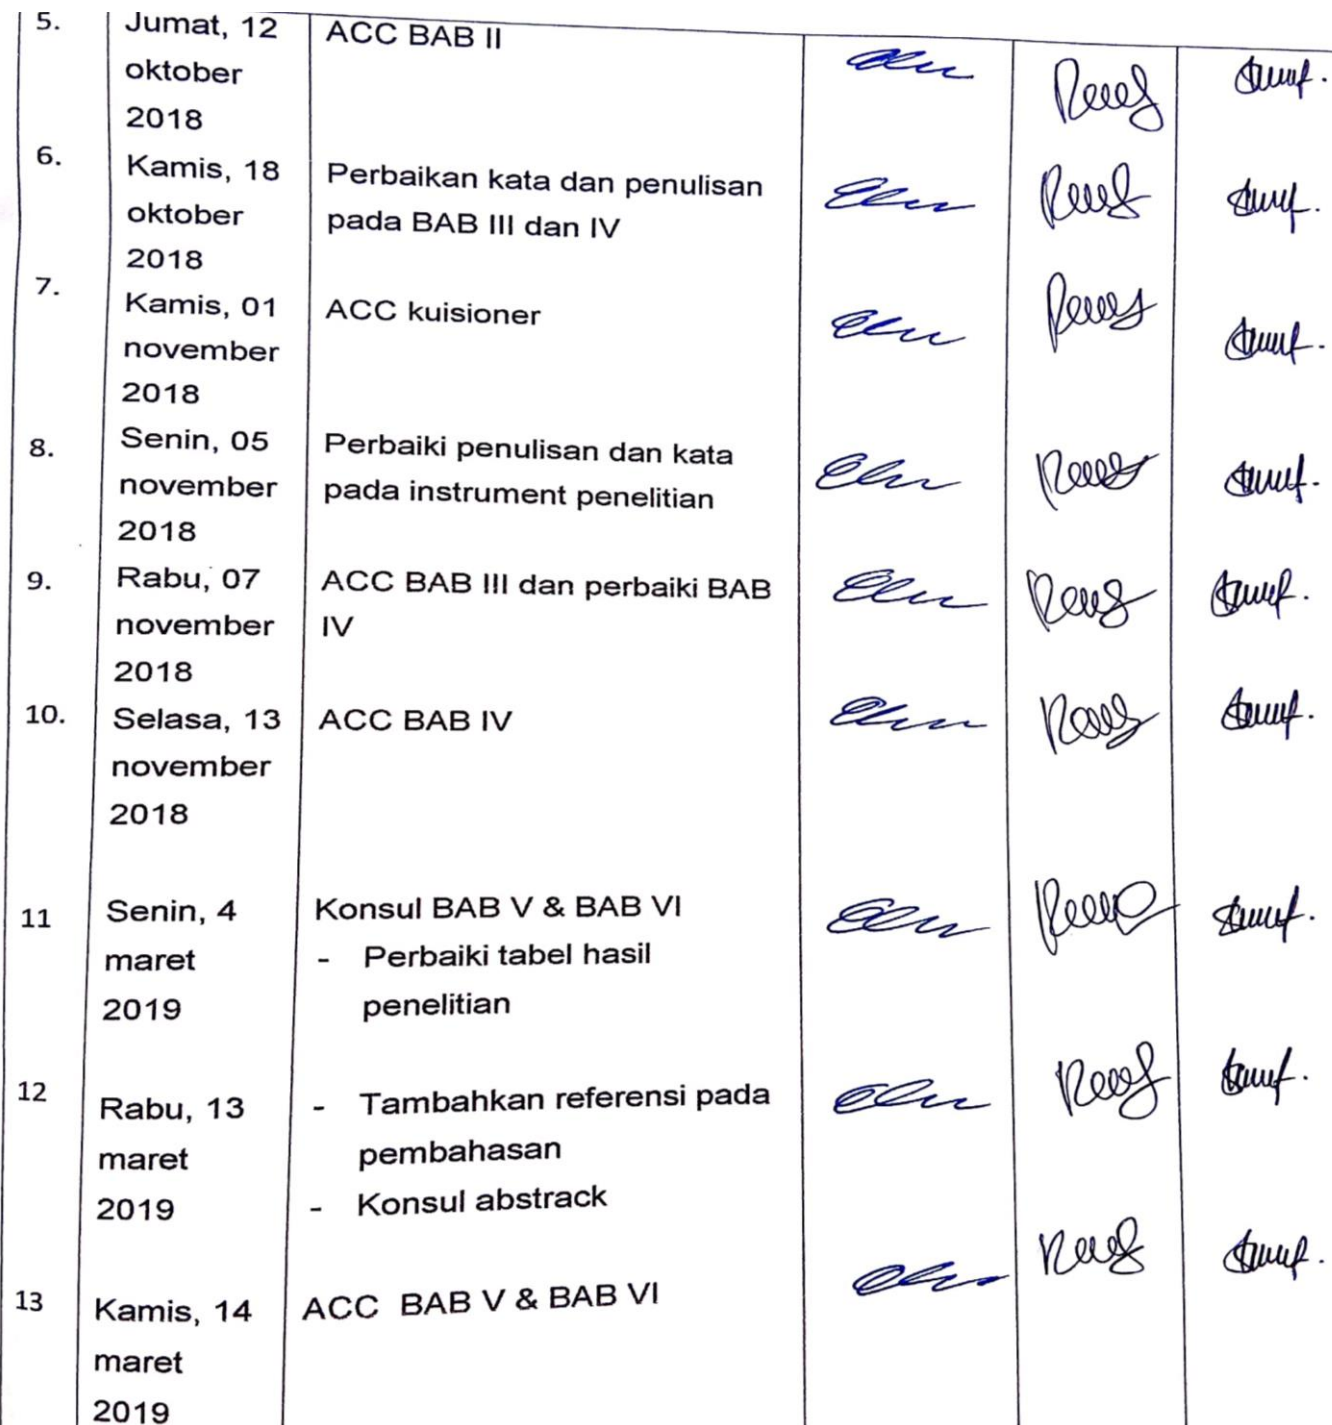 5.
Jumat, 12
oktober
2018
ACC BAB II
6.
Kamis, 18
oktober
2018
Perbaikan kata dan penulisan
pada BAB III dan IV
7.
Kamis, 01
november
2018
ACC kuisioner
8.
Senin, 05
november
2018
Perbaiki penulisan dan kata
pada instrument penelitian
9.
Rabu, 07
november
2018
ACC BAB III dan perbaiki BAB
IV
10.
Selasa, 13
november
2018
ACC BAB IV
11
Senin, 4
maret
2019
Konsul BAB V & BAB VI
- Perbaiki tabel hasil
penelitian
12
Rabu, 13
maret
2019
- Tambahkan referensi pada
pembahasan
- Konsul abstrack
13
Kamis, 14
maret
2019
ACC BAB V & BAB VI